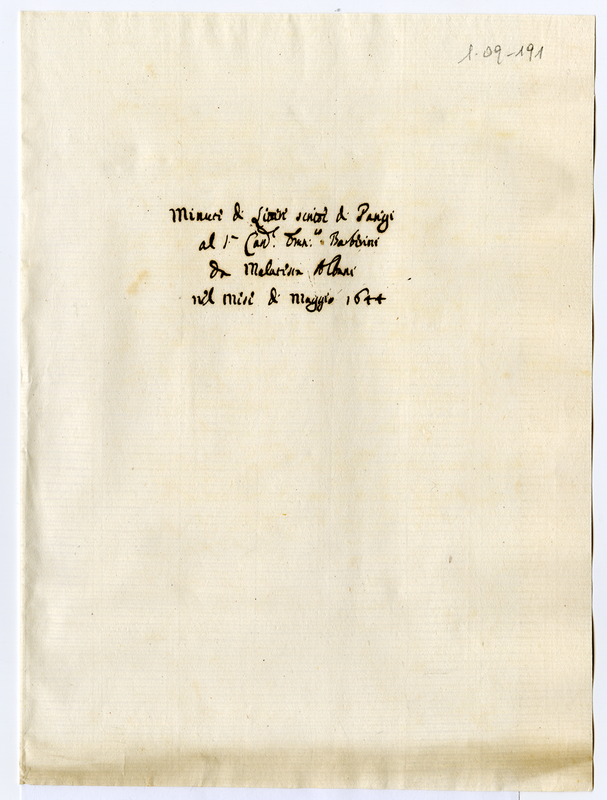 1-09-191
Minute di Lettere scritte di Parigi
al S.r Card.l Fran.co Barberini
da Malatesta Albani
nel mese di Maggio 1644